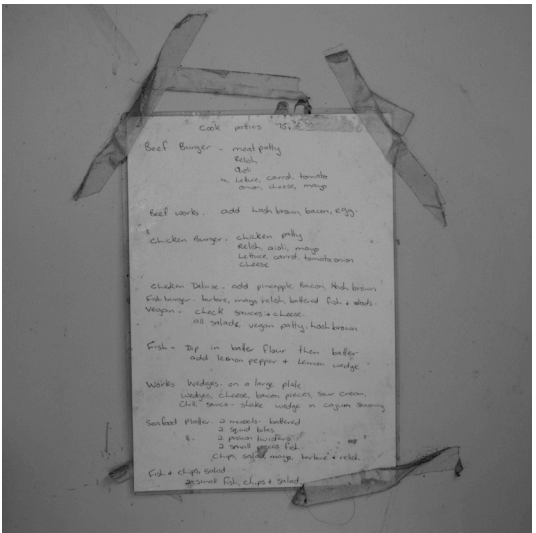 Cook patties 75°C
Beef Burger - meat patty
Relish,
aioli
Lettuce, carrot, tomato
onion, cheese, mayo
Beef works - add hash brown, bacon, egg.
Chicken Burger - chicken patty
Relish, aioli, mayo
Lettuce, carrot, tomato onion
cheese
Chicken Deluxe - add pineapple, Bacon, Hash brown
Fish burger - tartare, mayo, relish, battered fish + salads.
Vegan - check sauces + cheese.
all salads, vegan patty, hash brown
Fish - Dip in batter flour then batter
add lemon pepper + Lemon wedge
Works Wedges - on a large plate
wedges, cheese, bacon pieces, sour cream,
Chilli sauce - shake wedge in cajun
Seafood Platter - 2 mussels - battered
2 squid bites
2 prawn twisters
2 small pieces fish
Chips, salad, mayo, tartare + relish
Fish + chips, salad
2 small fish, chips + salad